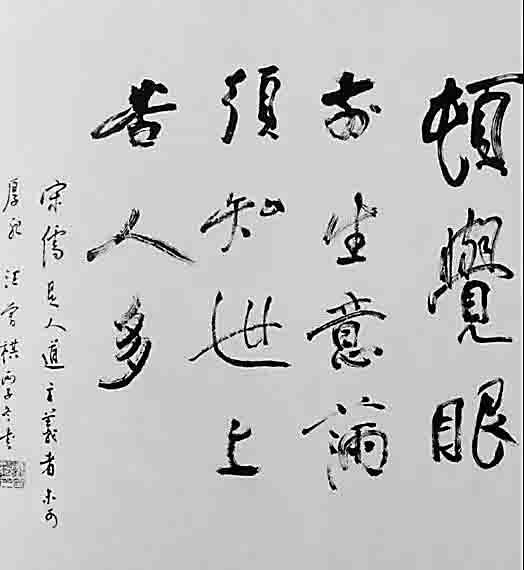 頓覺眼
前生意滿
須知世上
苦人多
宋儒是人道主義者未可
厚非 汪曾祺 丙子冬